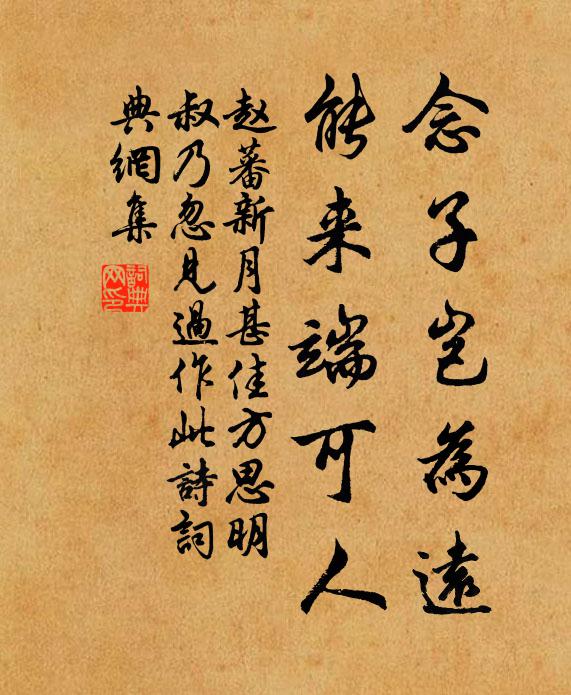 念子岂為遠
能来端可人
赵蕃新月甚佳方思明
叔乃忽見過作此詩詞
典網集
詞典网印